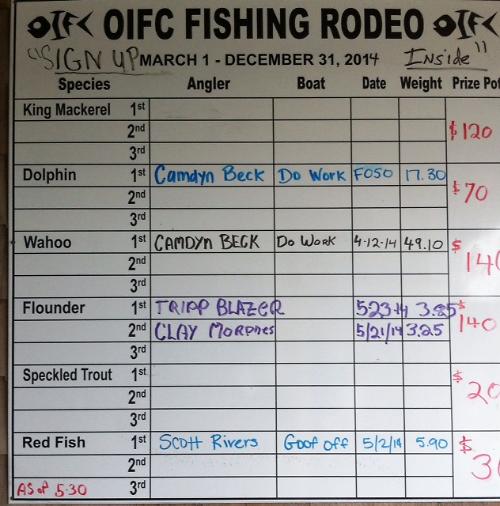 OIF OIFC FISHING RODEO OIF
"SIGN UP MARCH 1 - DECEMBER 31, 2014 Inside"
Species Angler Boat Date Weight Prize Pot
King Mackerel 1st
2nd $120
3rd
Dolphin 1st Camdyn Beck Do Work FOSO 17.30
2nd $70
3rd
Wahoo 1st CAMDYN BECK Do Work 4-12-14 49.10
2nd $140
3rd
Flounder 1st TRIPP BLAZER 5-23-14 3.85
2nd CLAY 5/21/14 3.25 $140
3rd
Speckled Trout 1st
2nd $20
3rd
Red Fish 1st Scott Rivers Goof off 5/2/14 5.90
2nd $3
AS of 5-30 3rd